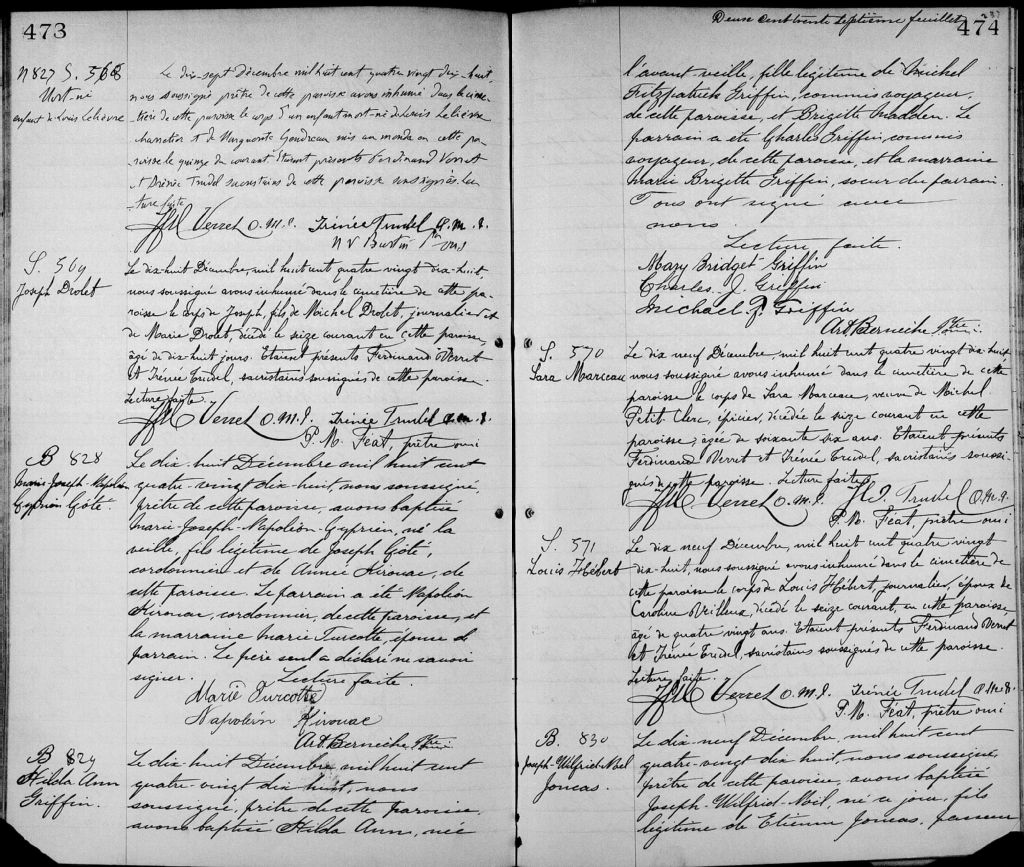 473
N 827 S. 568
Mort-né
enfant de Louis Lelièvre
Le dix-sept Décembre mil huit cent quatre vingt dix-huit,
nous soussigné prêtre de cette paroisse avons inhumé dans le cime-
tière de cette paroisse le corps d'un enfant mort-né de Louis Lelièvre
et de Marguerite Gendreau mis au monde en cette pa-
roisse le quinze du courant Etaient présents Ferdinand Verret
et Irénée Trudel sacristains de cette paroisse soussignés. Lec
ture faite
Verret O.M.I. Irénée Trudel O.M.I.
S. 569
Joseph Drolet
Le dix-huit Décembre, mil huit cent quatre vingt dix-huit,
nous soussigné avons inhumé dans le cimetière de cette pa-
roisse le corps de Joseph, fils de Michel Drolet, journalier et
de Marie Drolet, décédé le seize courant en cette paroisse,
âgé de dix-huit jours. Etaient présents Ferdinand Verret
et Irénée Trudel, sacristains soussignés de cette paroisse.
Lecture faite.
Verret O.M.I. Irénée Trudel O.M.I.
P. M. Féat, prêtre omi
B 828
Marie-Joseph-Napoléon
Cyprien Côté.
Le dix-huit Décembre mil huit cent
quatre-vingt dix-huit, nous soussigné,
prêtre de cette paroisse, avons baptisé
Marie-Joseph-Napoléon-Cyprien, né la
veille, fils légitime de Joseph Côté,
cordonnier et de Année Kirouac, de
cette paroisse. Le parrain a été Napoléon
Kirouac, cordonnier, de cette paroisse, et
la marraine Marie Turcotte, épouse du
parrain. Le père seul a déclaré ne savoir
signer. Lecture faite.
Marie Turcotte
Napoléon Kirouac
Art. Bernèche Ptre
B 829
Hilda Ann
Griffin.
Le dix-huit Décembre, mil huit cent
quatre-vingt dix huit, nous
soussigné, prêtre de cette paroisse,
avons baptisé Hilda Ann, née
Deux cent trente septième feuillet
237
474
l'avant-veille, fille légitime de Michel
Fitzpatrick Griffin, commis voyageur,
de cette paroisse, et Brigitte Madden. Le
parrain a été Charles Griffin, commis
voyageur, de cette paroisse, et la marraine
Marie Brigette Griffin, soeur du parrain.
Tous ont signé avec
nous.
Lecture faite.
Mary Bridget Griffin
Charles J. Griffin
Michael F. Griffin
Art. Bernèche Ptre
S. 570
Sara Marceau
Le dix neuf Décembre, mil huit cent quatre vingt dix-huit
nous soussigné avons inhumé dans le cimetière de cette
paroisse le corps de Sara Marceau, veuve de Michel
Petit Clerc, épicier, décédée le seize courant en cette
paroisse, âgée de soixante six ans. Etaient présents
Ferdinand Verret et Irénée Trudel, sacristains soussi-
gnés de cette paroisse. Lecture faite.
Verret O.M.I. Trudel O.M.I.
P. M. Féat, prêtre omi
S. 571
Louis Hébert
Le dix neuf Décembre, mil huit cent quatre vingt
dix-huit, nous soussigné avons inhumé dans le cimetière de
cette paroisse le corps de Louis Hébert, journalier, époux de
Caroline Veilleux, décédé le seize courant, en cette paroisse,
âgé de quatre vingt ans. Etaient présents Ferdinand Verret
et Irénée Trudel, sacristains soussignés de cette paroisse.
Lecture faite.
Verret O.M.I. Irénée Trudel O.M.I.
P. M. Féat, prêtre omi
B. 830
Joseph-Wilfrid-Noël
Joncas.
Le dix-neuf Décembre, mil huit cent
quatre-vingt dix huit, nous soussigné,
prêtre de cette paroisse, avons baptisé
Joseph-Wilfrid-Noël, né ce jour, fils
légitime de Etienne Joncas,